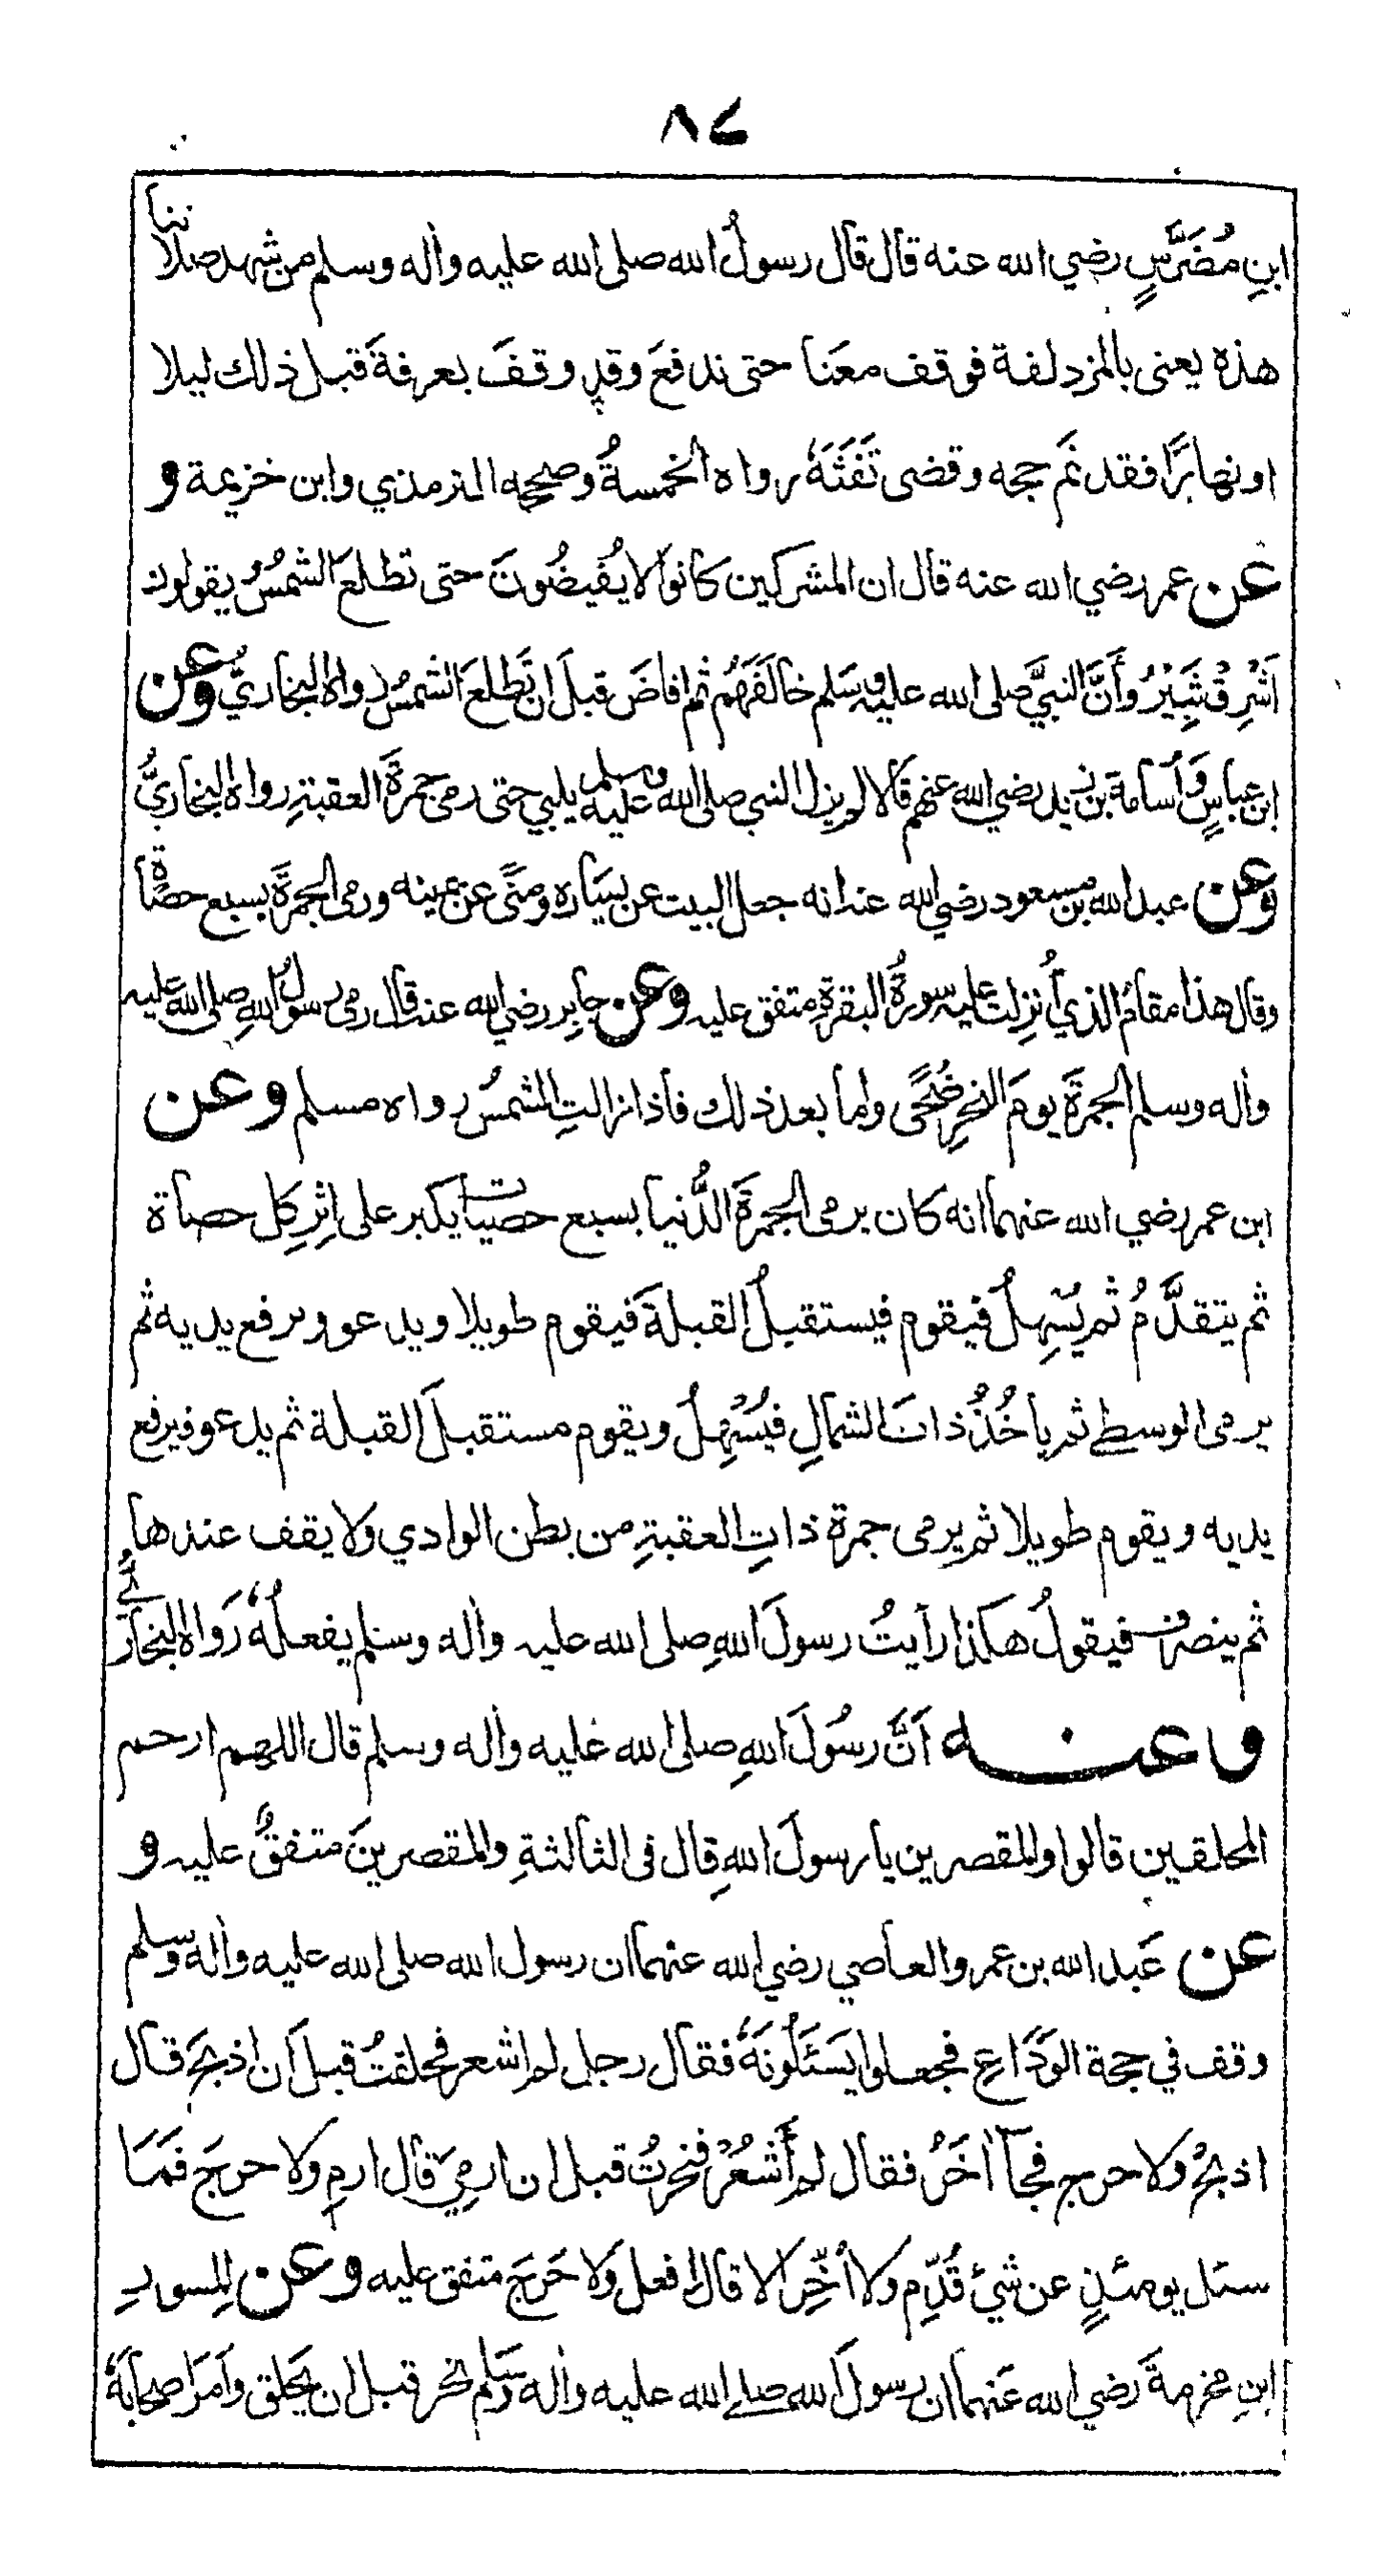 ٨٤
ابنِ مُضَرَّسٍ رضي الله عنه قال قال رسولُ الله صلى الله عليه واٰله وسلم من شهد صلاتنا
هذه يعنى بالمزدلفة فوقف معَنا حتى ندفعَ وقد وقفَ بعرفةَ قبل ذلك ليلا
او نهارًا فقد تَم حجه وقضى تَفَثَهٗ رواه الخمسةُ وصححه الترمذي وابن خزيمة و
عن عمر رضي الله عنه قال ان المشركين كانوا لا يُفيضُونَ حتى تطلعَ الشمسُ ويقولون
اَشْرِقْ ثَبِيْرُ وأَنَّ النبيَّ صلى الله عليه وسلم خالَفَهَم ثم افاضَ قبلَ ان تَطلعَ الشمسُ رواه البخاريُّ وعن
ابن عباسٍ وَأُسامة بن زيد رضي الله عنهم قالا لم يزل النبي صلى الله عليه وسلم يلبي حتى رمى جمرةَ العقبةِ رواه البخاريُّ
وعن عبد الله بن مسعود رضي الله عنه انه جعل البيت عن يَسَاره ومنًى عن يمينه ورمى الجمرةَ بسبع حصاةٍ
وقال هذا مقامُ الذي أُنزلت عليه سورةُ البقرةِ متفق عليه وعن جابرٍ رضي الله عنه قال رمى رسولُ اللهِ صلى الله عليه
واٰله وسلم الجمرةَ يومَ النحرِ ضُحًى واما بعد ذلك فاذا زالتِ الشمسُ رواه مسلم وعن
ابن عمر رضي الله عنهما انه كان يرمى الجمرةَ الدُّنيا بسبع حصيات يكبر على اِثرِ كل حصاة
ثم يتقدَّمُ ثم يُسْهِلُ فيقوم فيستقبلُ القبلةَ فيقوم طويلا ويدعو ويرفع يديه ثم
يرمى الوسطى ثم يأخُذُ ذاتَ الشمالِ فيُسْهِلُ ويقوم مستقبلَ القبلة ثم يدعو فيرفع
يديه ويقوم طويلا ثم يرمى جمرة ذاتِ العقبةِ من بطن الوادي ولا يقف عندها
ثم ينصرف فيقولُ هكذا رأيتُ رسولَ اللهِ صلى الله عليه واٰله وسلم يفعلُهٗ رَواه البخاريُّ
وعنه اَنَّ رسُولَ اللهِ صلى الله عليه واٰله وسلم قال اللهم ارحم
المحلقين قالوا والمقصرين يا رسولَ اللهِ قال فى الثالثةِ والمقصرينَ متفقٌ عليه و
عن عَبد الله بن عمرو العاصي رضي الله عنهما ان رسول الله صلى الله عليه واٰله وسلم
وقف في حجة الوَدَاعِ فجعلوا يَسئَلُونَهٗ فقال رجل لم اشعر فحلقتُ قبل اَن اذبحَ قال
اذبحْ ولا حرج فجآ اٰخَرُ فقال لم أَشعُرْ فنحرتُ قبل ان ارميَ قال ارمِ ولا حرجَ فمَا
سئل يومئذٍ عن شيْئٍ قُدِّم ولا أُخِّر الا قال افعل ولا حَرجَ متفق عليه وعن المسورِ
ابنِ مخرمةَ رضي الله عَنهما ان رسولَ الله صلى الله عليه واٰله وسَلم نحر قبل ان يَحلق وأَمَرَ اصحابَهٗ